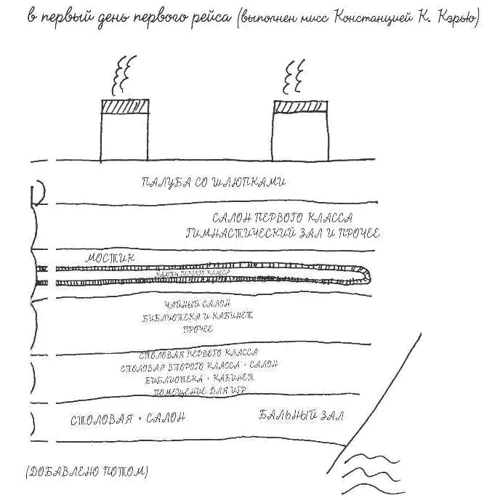 в первый день первого рейса (выполнен мисс Констанцией К. Кэрью)
ПАЛУБА СО ШЛЮПКАМИ
САЛОН ПЕРВОГО КЛАССА
ГИМНАСТИЧЕСКИЙ ЗАЛ И ПРОЧЕЕ
МОСТИК
КАЮТЫ ПЕРВОГО КЛАССА
ЧАЙНЫЙ САЛОН
БИБЛИОТЕКА И КАБИНЕТ
ПРОЧЕЕ
СТОЛОВАЯ ПЕРВОГО КЛАССА
СТОЛОВАЯ ВТОРОГО КЛАССА + САЛОН
БИБЛИОТЕКА + КАБИНЕТ
ПОМЕЩЕНИЕ ДЛЯ ИГР
СТОЛОВАЯ + САЛОН
БАЛЬНЫЙ ЗАЛ
(ДОБАВЛЕНО ПОТОМ)